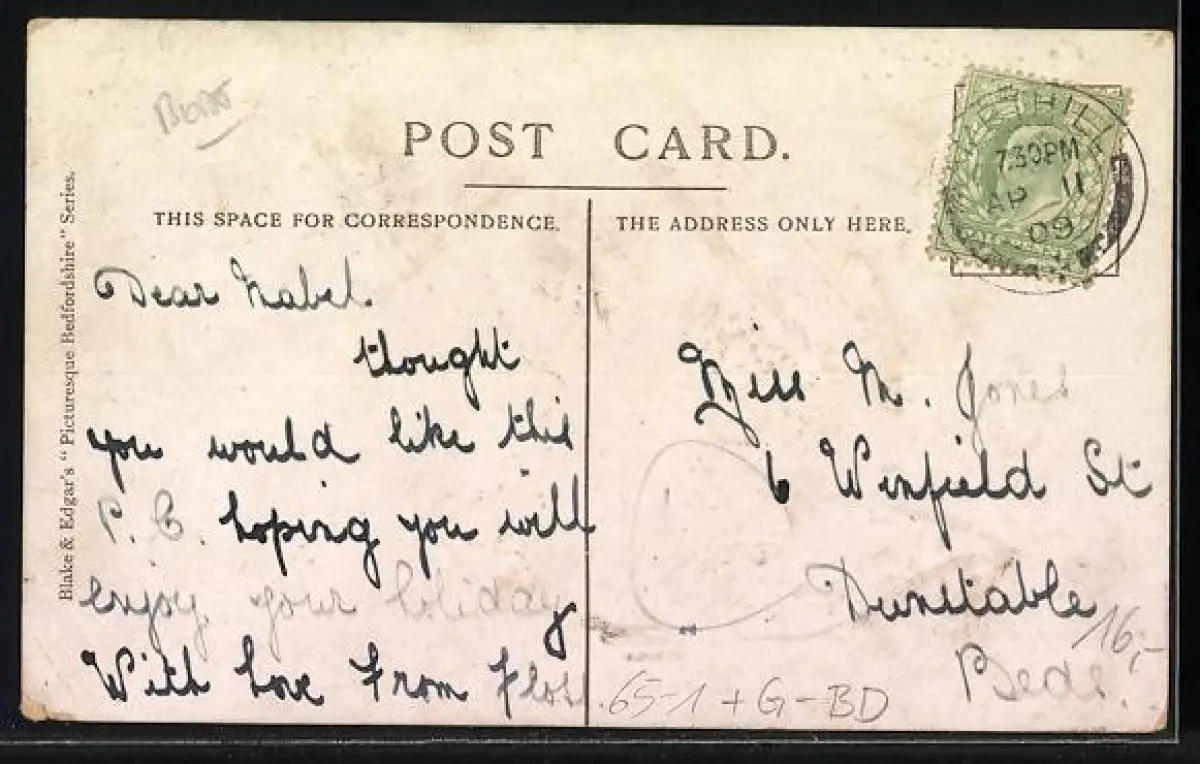 POST CARD.
THIS SPACE FOR CORRESPONDENCE.
THE ADDRESS ONLY HERE.
Blake & Edgar's "Picturesque Bedfordshire" Series.
Dear Mabel.
thought
you would like this
P. C. hoping you will
enjoy your holiday
With love from Floss
Miss M. Jones
6 Winfield St
Dunstable
Beds.
7.30PM
AP 11
09
16,-
65-1 + G-BD